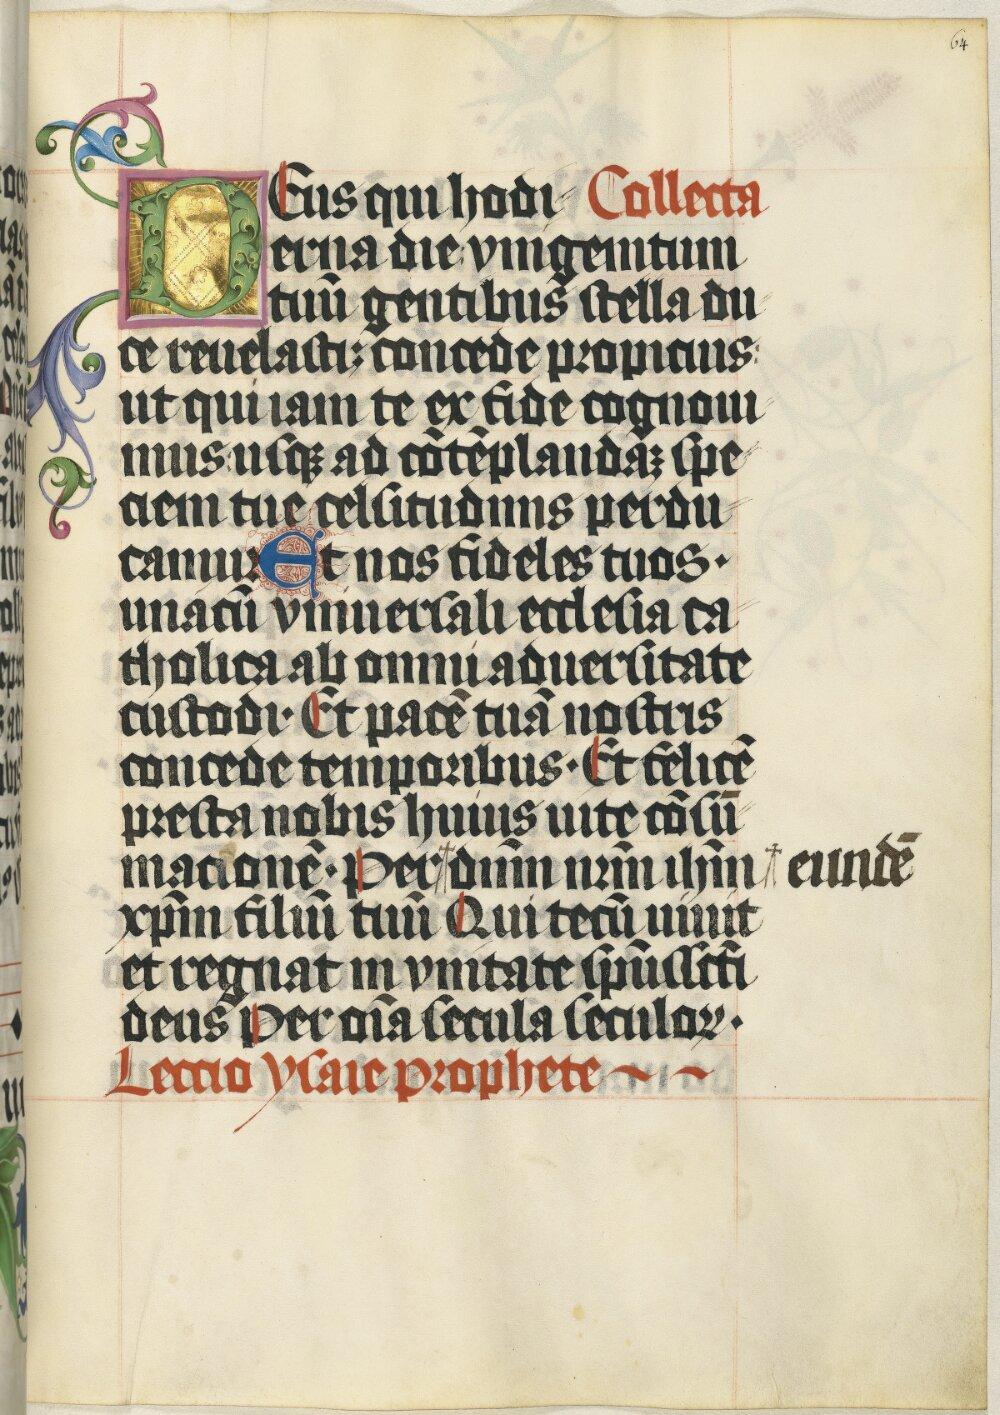 64
DEus qui hodi⸗ Collecta
erna die vnigenitum
tuū gentibus stella du⸗
ce reuelasti; concede propicius:
ut qui iam te ex fide cognoui⸗
mus: usqꝫ ad cōtēplandaꝫ spe⸗
ciem tue celsitudinis perdu⸗
camur Et nos fideles tuos·
unacū vniuersali ecclesia ca⸗
tholica ab omni aduersitate
custodi· Et pacē tuā nostris
concede temporibus· Et felicē
presta nobis huius uite cōsū⸗
macionē· Per † dn̄m nr̄m ih̄m † eundē
xp̄m filiū tuū Qui tecū uiuit
et regnat in vnitate sp̄ussc̄ti
deus Per om̄a secula seculoꝝ·
Leccio ysaie prophete ~ ~